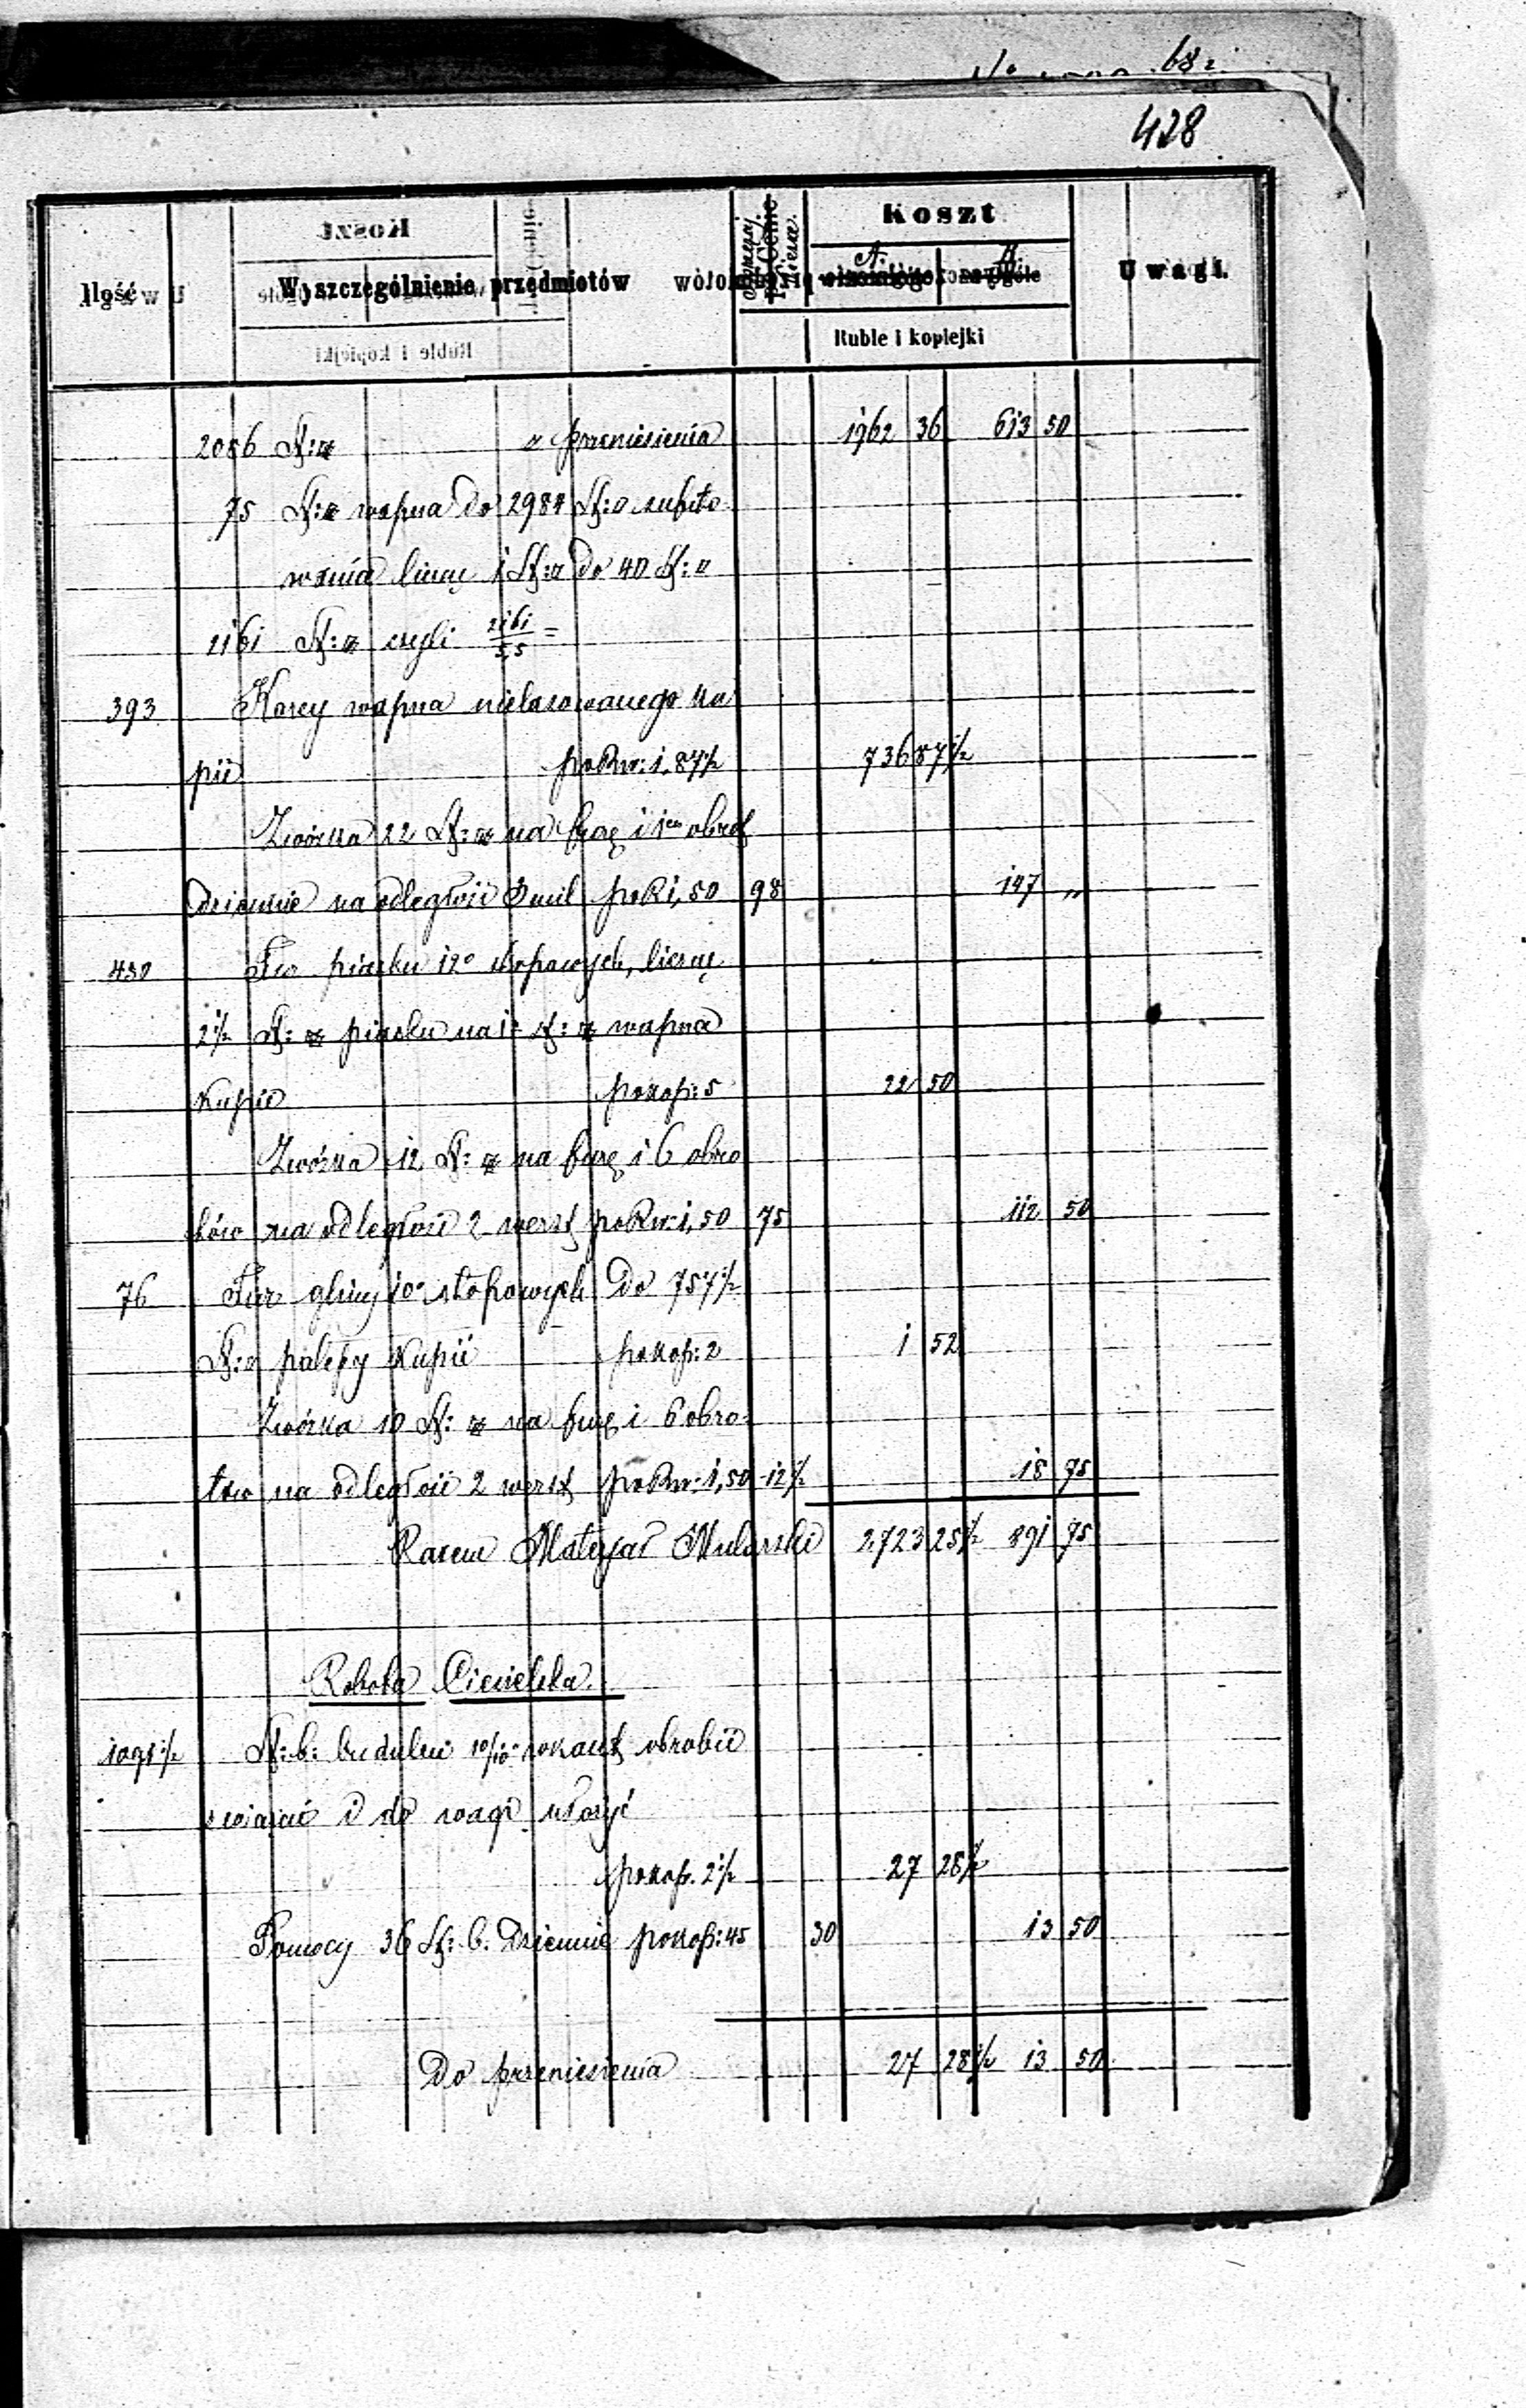 428
Ilość
Wyszczególnienie przedmiotów
Koszt
A. B.
Ruble i kopiejki
Uwagi.
2086 St: z przeniesienia 1962 36 613 50
75 St: wapna do 2984 St: □ rapito
wania licząc 1 St: do 40 St: □
2161 St: czyli 2161/5,5 =
393 Korcy wapna nielasowanego ku
pić po Rs: 1,87½ 736 87½
Zwózka 22 St: na furę i 1en obrot
dziennie na odległość 3 mil po R 1,50 98 147 "
450 Fur piasku 12o stopowych, licząc
2½ St: piasku na 1 St: wapna
Kupić po kop: 5 22 50
Zwózka 12 St: na furę i 6 obro
tów na odległość 2 werst po Rs: 1,50 75 112 50
76 Fur gliny 10o stopowych do 757½
St: □ polepy Kupić po kop: 2 1 52
Zwózka 10 St: na furę i 6 obro-
tów na odległość 2 werst po Rs: 1,50 12½ 18 75
Razem Materjał Mularski 2723 25½ 891 75
Robota Ciesielska.
1091½ St: b: budulcu 10/10 w kant obrobić
związać i do wagi ułożyć
po kop. 2½ 27 28½
Pomocy 36 St: b. dziennie po kop: 45 30 13 50
Do przeniesienia 27 28½ 13 50